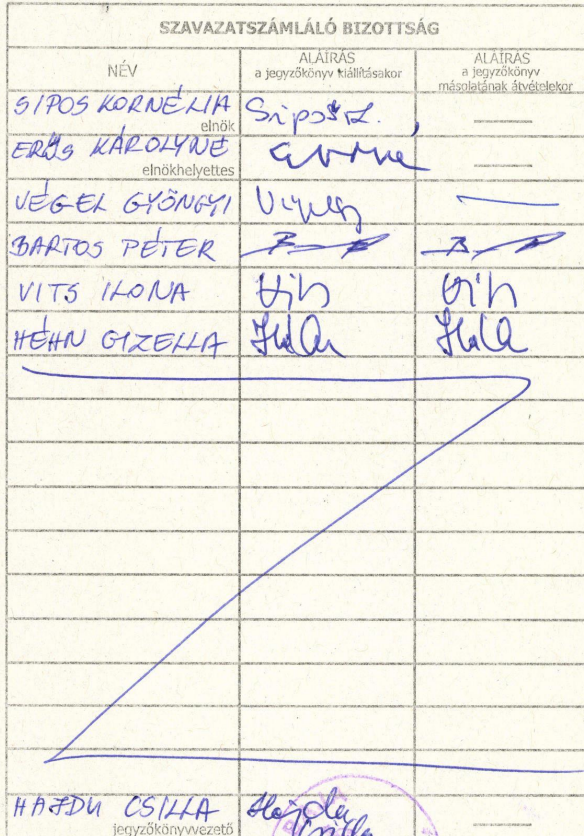 SZAVAZATSZÁMLÁLÓ BIZOTTSÁG
NÉV
ALÁÍRÁS
a jegyzőkönyv kiállításakor
ALÁÍRÁS
a jegyzőkönyv
másolatának átvételekor
SIPOS KORNÉLIA Sipos K.
elnök
ERŐS KÁROLYNÉ
elnökhelyettes
VÉGEL GYÖNGYI
BARTOS PÉTER
VITS ILONA
HÉHN GIZELLA
HAJDU CSILLA Hajdu
Csilla
jegyzőkönyvvezető